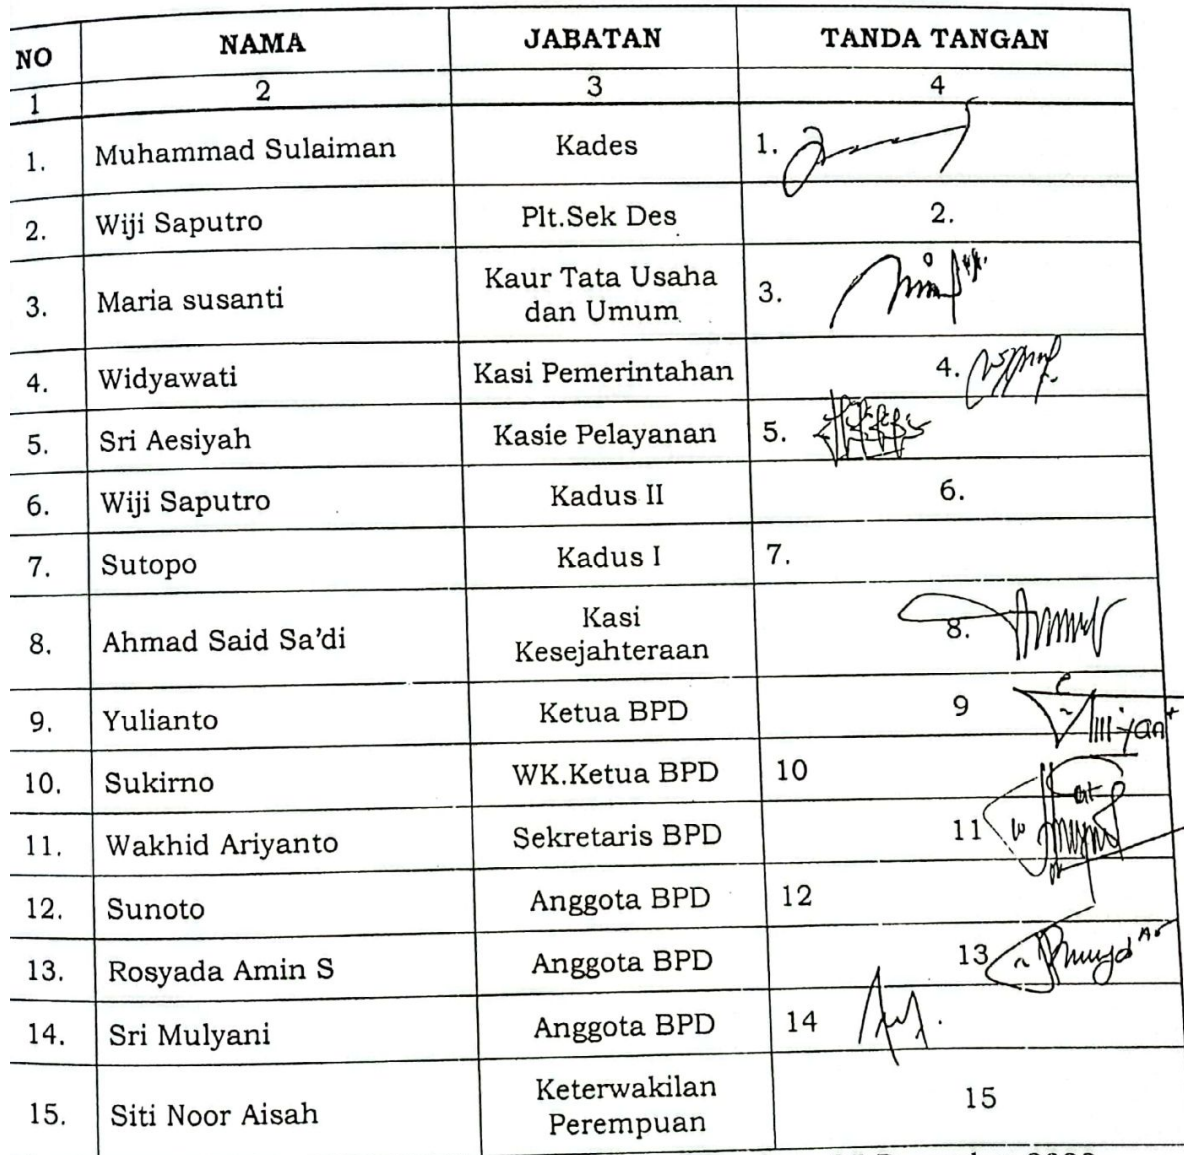 NO NAMA JABATAN TANDA TANGAN
1 2 3 4
1. Muhammad Sulaiman Kades 1.
2. Wiji Saputro Plt.Sek Des 2.
3. Maria susanti Kaur Tata Usaha dan Umum 3.
4. Widyawati Kasi Pemerintahan 4.
5. Sri Aesiyah Kasie Pelayanan 5.
6. Wiji Saputro Kadus II 6.
7. Sutopo Kadus I 7.
8. Ahmad Said Sa'di Kasi Kesejahteraan 8.
9. Yulianto Ketua BPD 9
10. Sukirno WK.Ketua BPD 10
11. Wakhid Ariyanto Sekretaris BPD 11
12. Sunoto Anggota BPD 12
13. Rosyada Amin S Anggota BPD 13
14. Sri Mulyani Anggota BPD 14
15. Siti Noor Aisah Keterwakilan Perempuan 15